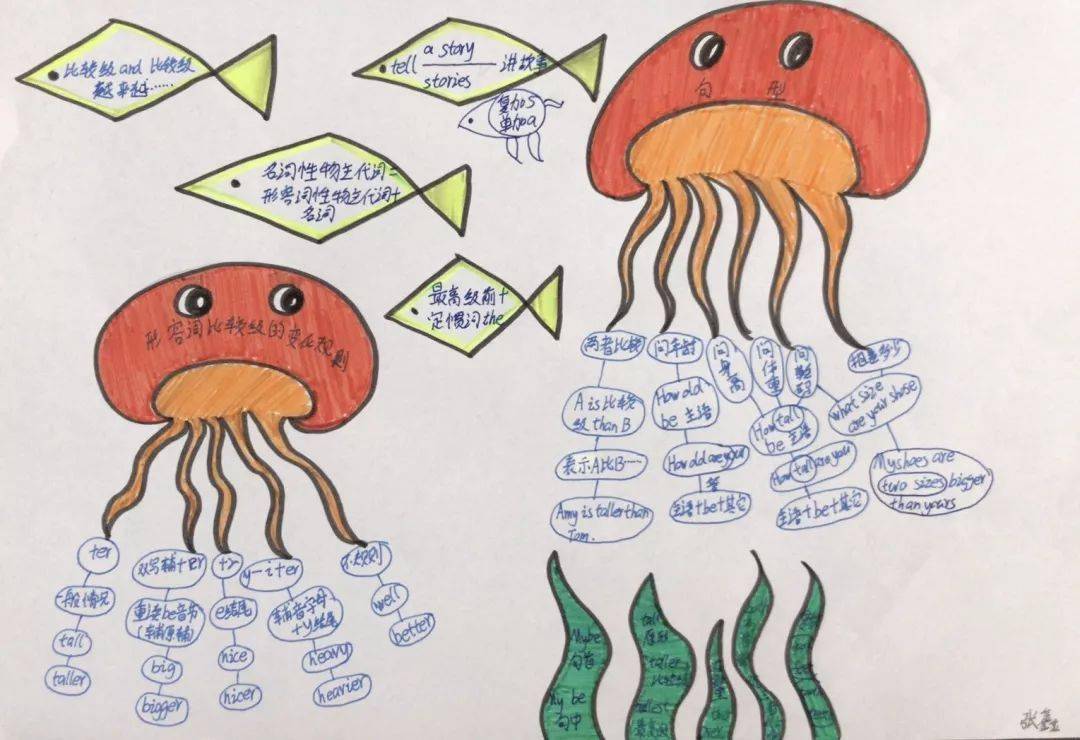 比较级and比较级
越来越……
tell a story
stories
讲故事
复加s
单加a
名词性物主代词=
形容词性物主代词+
名词
最高级前+
定惯词the
句型
两者比较
A is比较
级than B
表示A比B……
Amy is taller than
Tom.
问年龄
How old
be 主语
How old are you
答
主语+be+其它
问身高
问体重
问鞋码
How tall
be 主语
How tall are you
主语+be+其它
相差多少
what size
are your shose
My shoes are
two sizes bigger
than yours
形容词比较级的变化规则
+er
一般情况
tall
taller
双写辅+er
重读be音节
(辅原辅)
big
bigger
+r
e结尾
nice
nicer
y→i+er
辅音字母
+y结尾
heavy
heavier
不规则
well
better
Mybe
句首
My be
句中
tall
原型
taller
比较级
tallest
最高级
张鑫